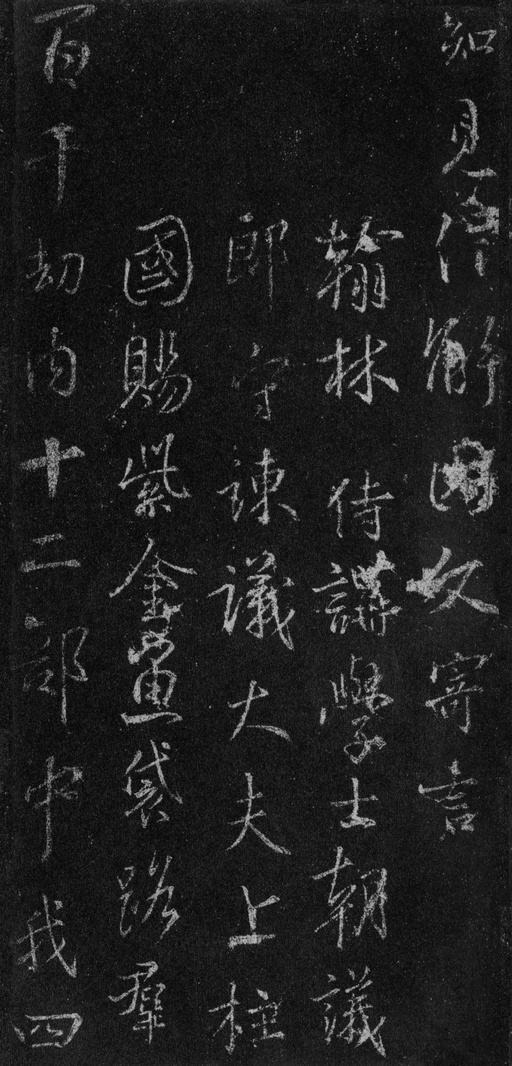 知見信解因文寄言
翰林侍講學士朝議
郎守諫議大夫上柱
國賜紫金魚袋路羣
百千劫內十二部中我四